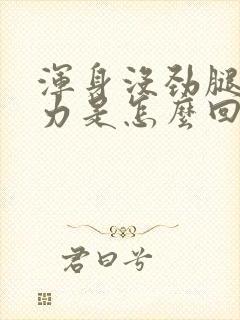 渾身沒勁腿
力是怎麼回
君曰兮